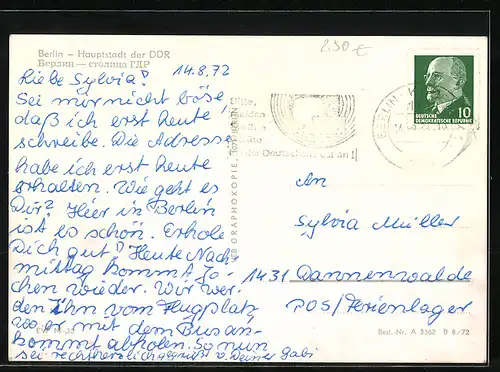 Berlin – Hauptstadt der DDR
Берлин — столица ГДР
14.8.72
2.50 €
Liebe Sylvia!
Sei mir nicht böse,
daß ich erst heute
schreibe. Die Adresse
habe ich erst heute
erhalten. Wie geht es
Dir? Hier in Berlin
ist es schön. Erhole
Dich gut! Heute Nach
mittag kommt Jo-
chen wieder. Wir wer-
den Ihn vom Flugplatz
wo er mit dem Bus an-
kommt abholen. So nun
sei recht herzlich gegrüßt v. Deiner Gabi
Bitte,
der Deutschen Post an!
BERLIN
10
DEUTSCHE
DEMOKRATISCHE REPUBLIK
An
Sylvia Müller
1431 Dannenwalde
POS/Ferienlager
Best.-Nr. A 3362 B 8/72